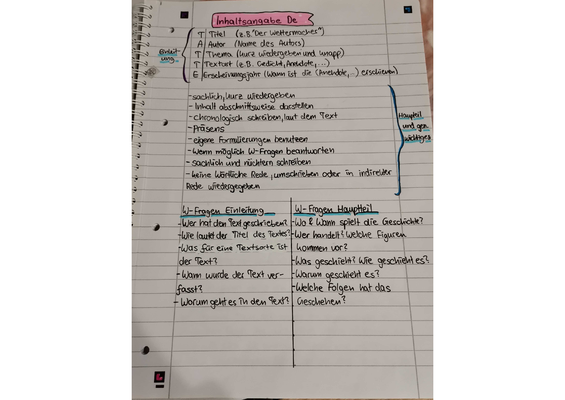 Inhaltsangabe De
Einleitung
T Titel (z.B "Der Wettermacher")
A Autor (Name des Autors)
T Thema (kurz wiedergeben und knapp)
T Textart (z.B. Gedicht, Anekdote,...)
E Erscheinungsjahr (Wann ist die (Anekdote,...) erschienen)
-sachlich, kurz wiedergeben
-Inhalt abschnittsweise darstellen
-chronologisch schreiben, laut dem Text
-Präsens
-eigene Formulierungen benutzen
-Wenn möglich W-Fragen beantworten
-sachlich und nüchtern schreiben
-keine Wörtliche Rede, umschreiben oder in indirekter
Rede wiedergegeben
Hauptteil
und
W-Fragen Einleitung
-Wer hat den Text geschrieben?
-Wie lautet der Titel des Textes?
-Was für eine Textsorte ist
der Text?
-Wann wurde der Text ver-
fasst?
-Worum geht es in den Text?
W-Fragen Hauptteil
-Wo & Wann spielt die Geschichte?
-Wer handelt? Welche Figuren
kommen vor?
-Was geschieht? Wie geschieht es?
-Warum geschieht es?
-Welche Folgen hat das
Geschehen?